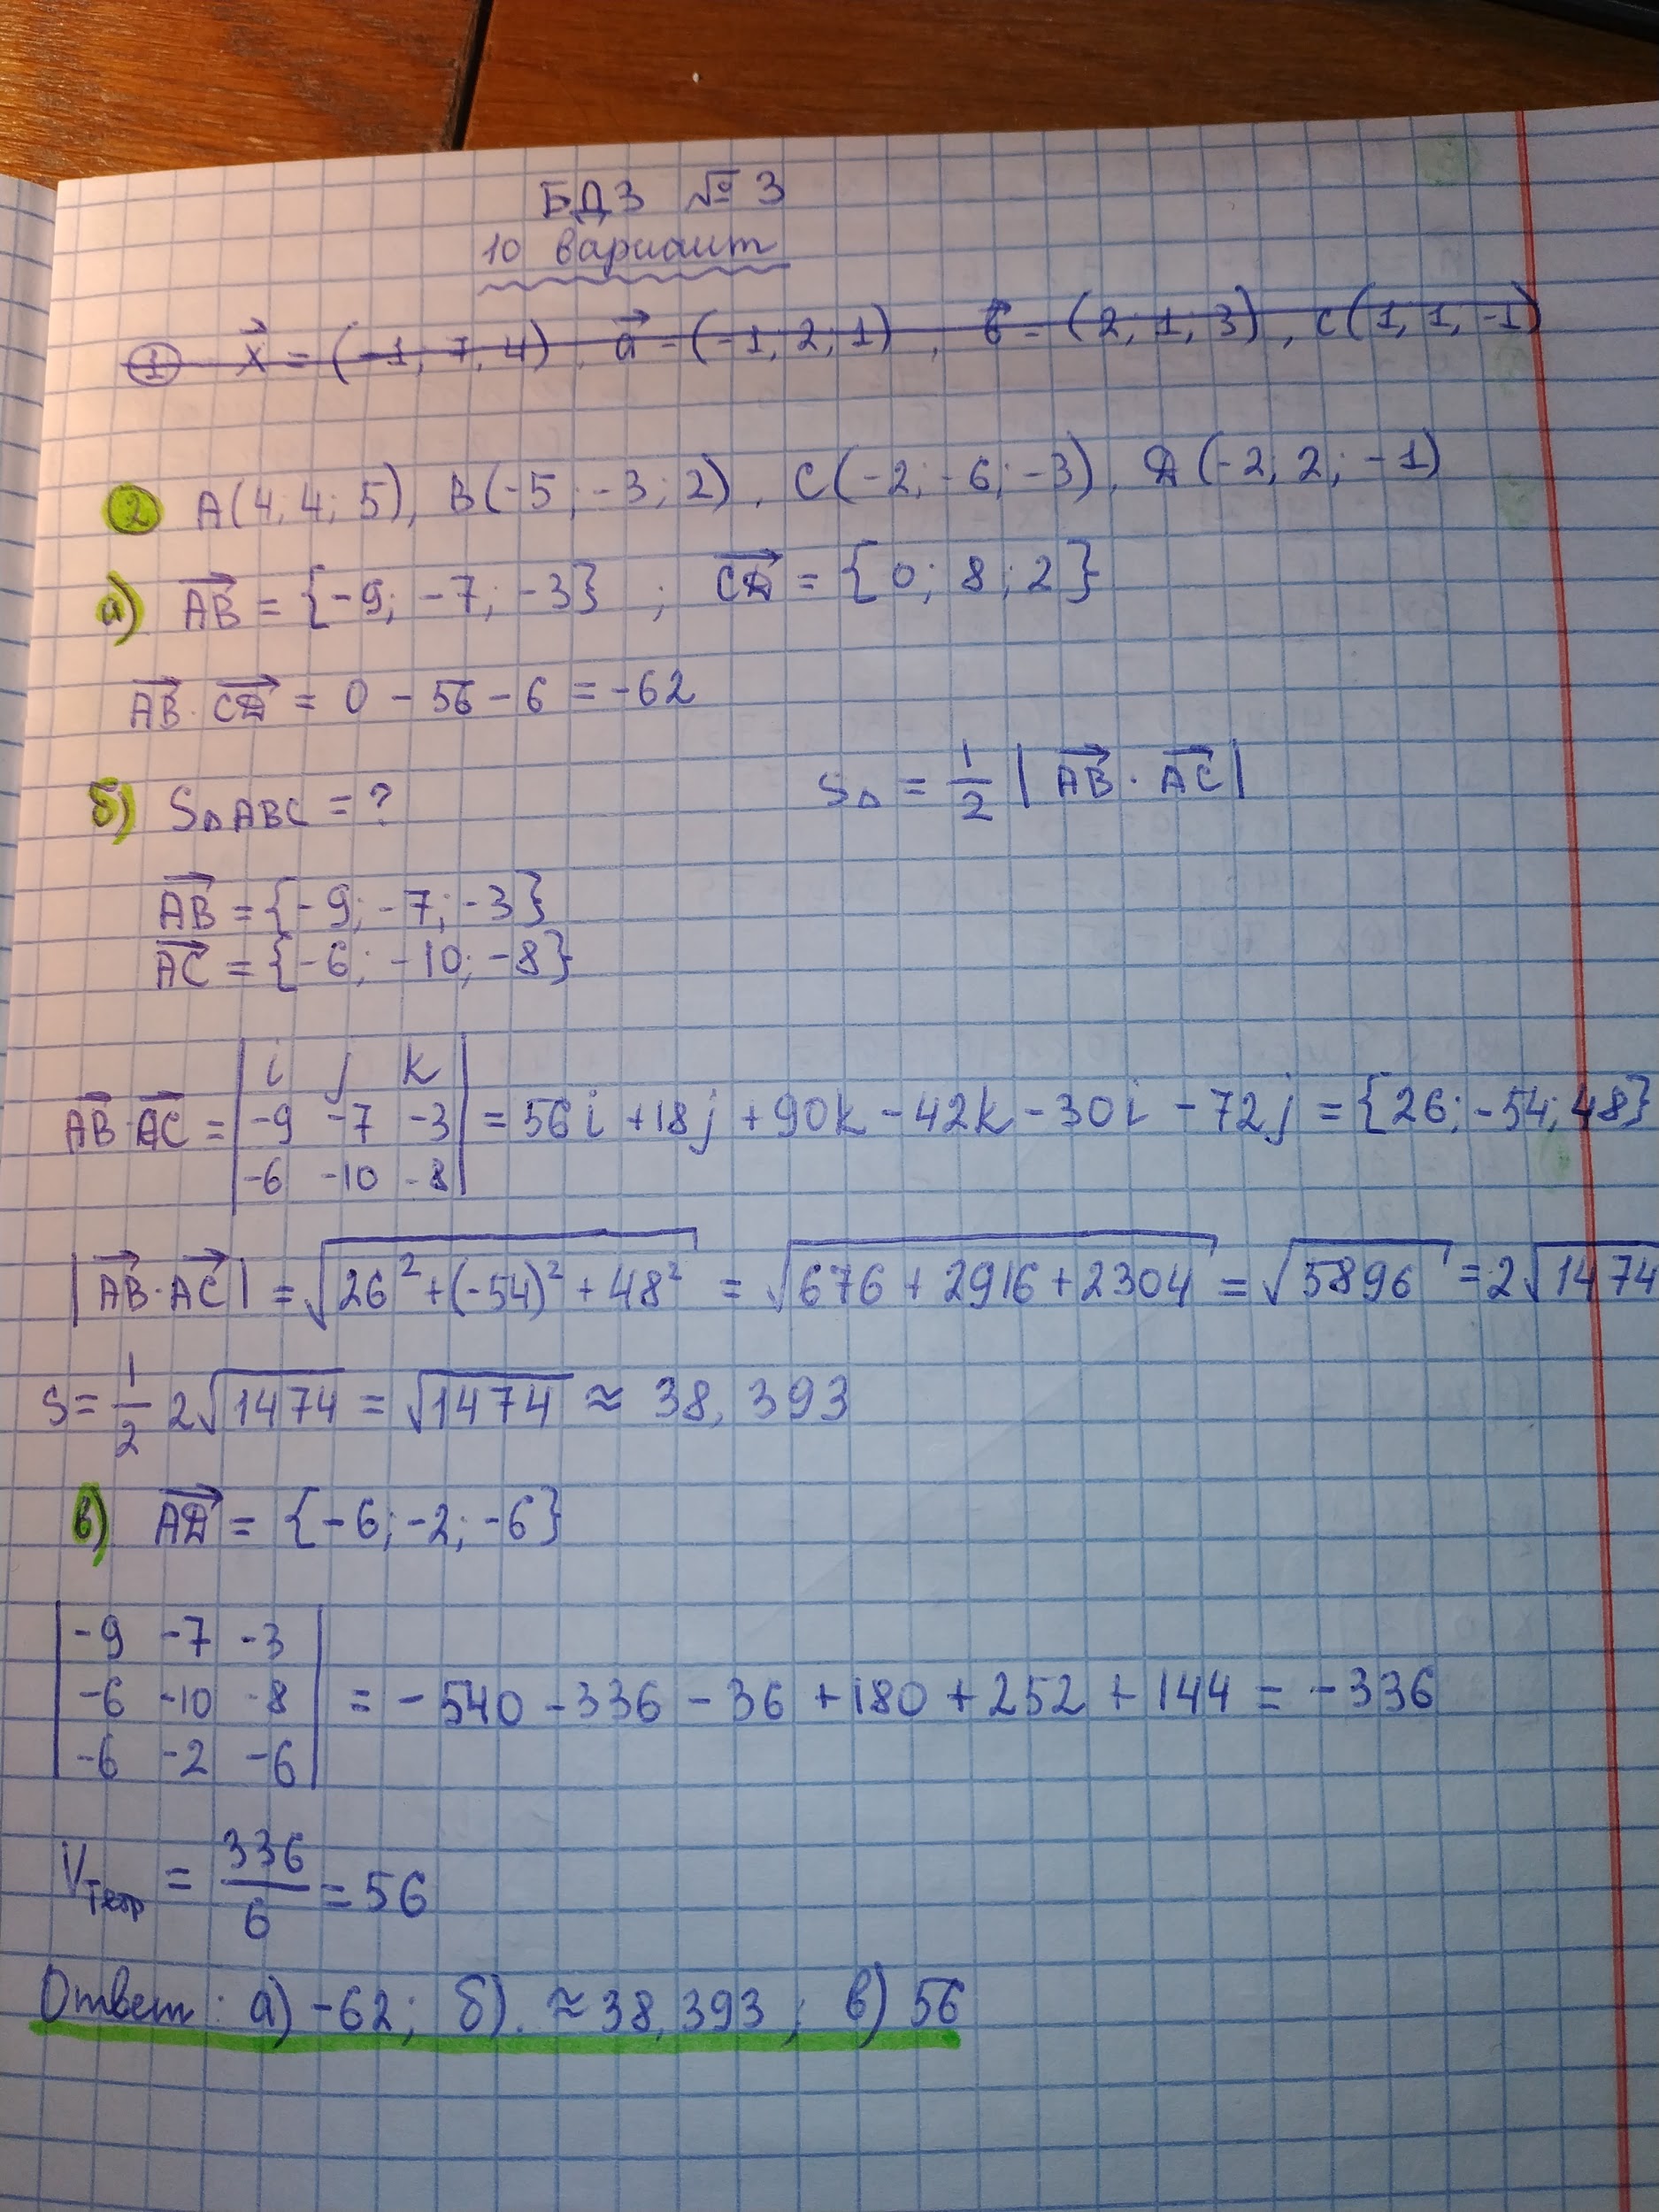 БДЗ № 3
10 вариант
① x⃗ = (-1, 7, 4), a⃗ = (-1, 2, 1), b⃗ = (2, 1, 3), c(1, 1, -1)
② A(4; 4; 5), B(-5; -3; 2), C(-2; -6; -3), D(-2; 2; -1)
а) AB = {-9; -7; -3} ; CD = {0; 8; 2}
AB · CD = 0 - 56 - 6 = -62
б) S△ABC = ? S△ = 1/2 | AB · AC |
AB = {-9; -7; -3}
AC = {-6; -10; -8}
i j k
AB · AC = | -9 -7 -3 | = 56i + 18j + 90k - 42k - 30i - 72j = {26; -54; 48}
-6 -10 -8
|AB · AC| = √26² + (-54)² + 48² = √676 + 2916 + 2304 = √5896 = 2√1474
S = 1/2 2√1474 = √1474 ≈ 38,393
в) AD = {-6; -2; -6}
-9 -7 -3
-6 -10 -8 = -540 - 336 - 36 + 180 + 252 + 144 = -336
-6 -2 -6
Vтетр = 336/6 = 56
Ответ: а) -62; б). ≈ 38,393; в) 56